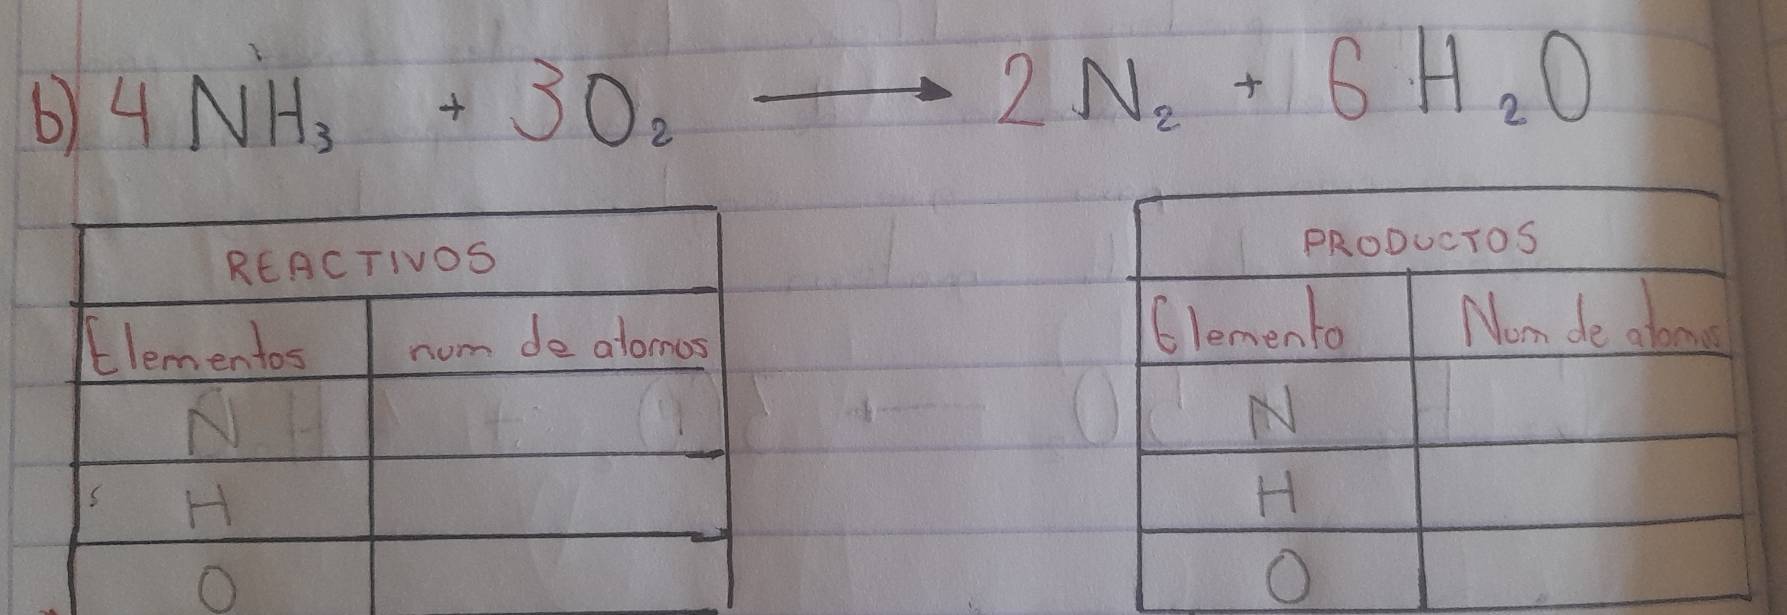 b) 4 NH₃ + 3O₂ → 2 N₂ + 6 H₂O
REACTIVOS
Elementos num de atomos
N
H
O
PRODUCTOS
Elemento Num de atomos
N
H
O